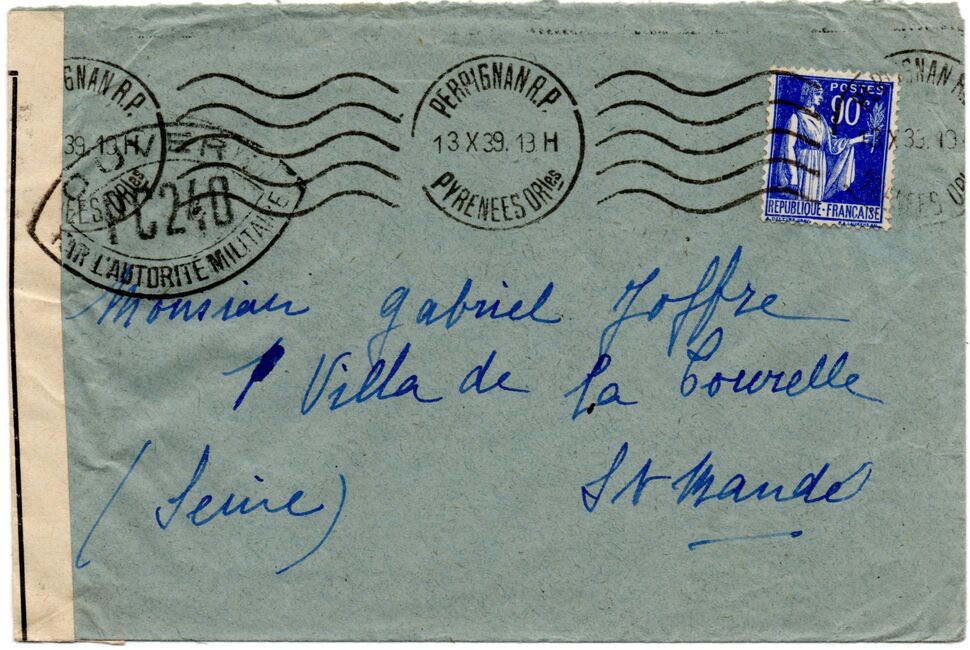 PERPIGNAN R.P.
13 X 39. 13 H
PYRENEES ORles
GNAN R.P.
39. 13 H
EES ORles
GNAN R
X 39. 13
EES OR
POSTES
90c
REPUBLIQUE·FRANCAISE
OUVERT
PC240
PAR L'AUTORITÉ MILITAIRE
Monsieur Gabriel Joffre
1 Villa de La Tourelle
St Mandé
(Seine)